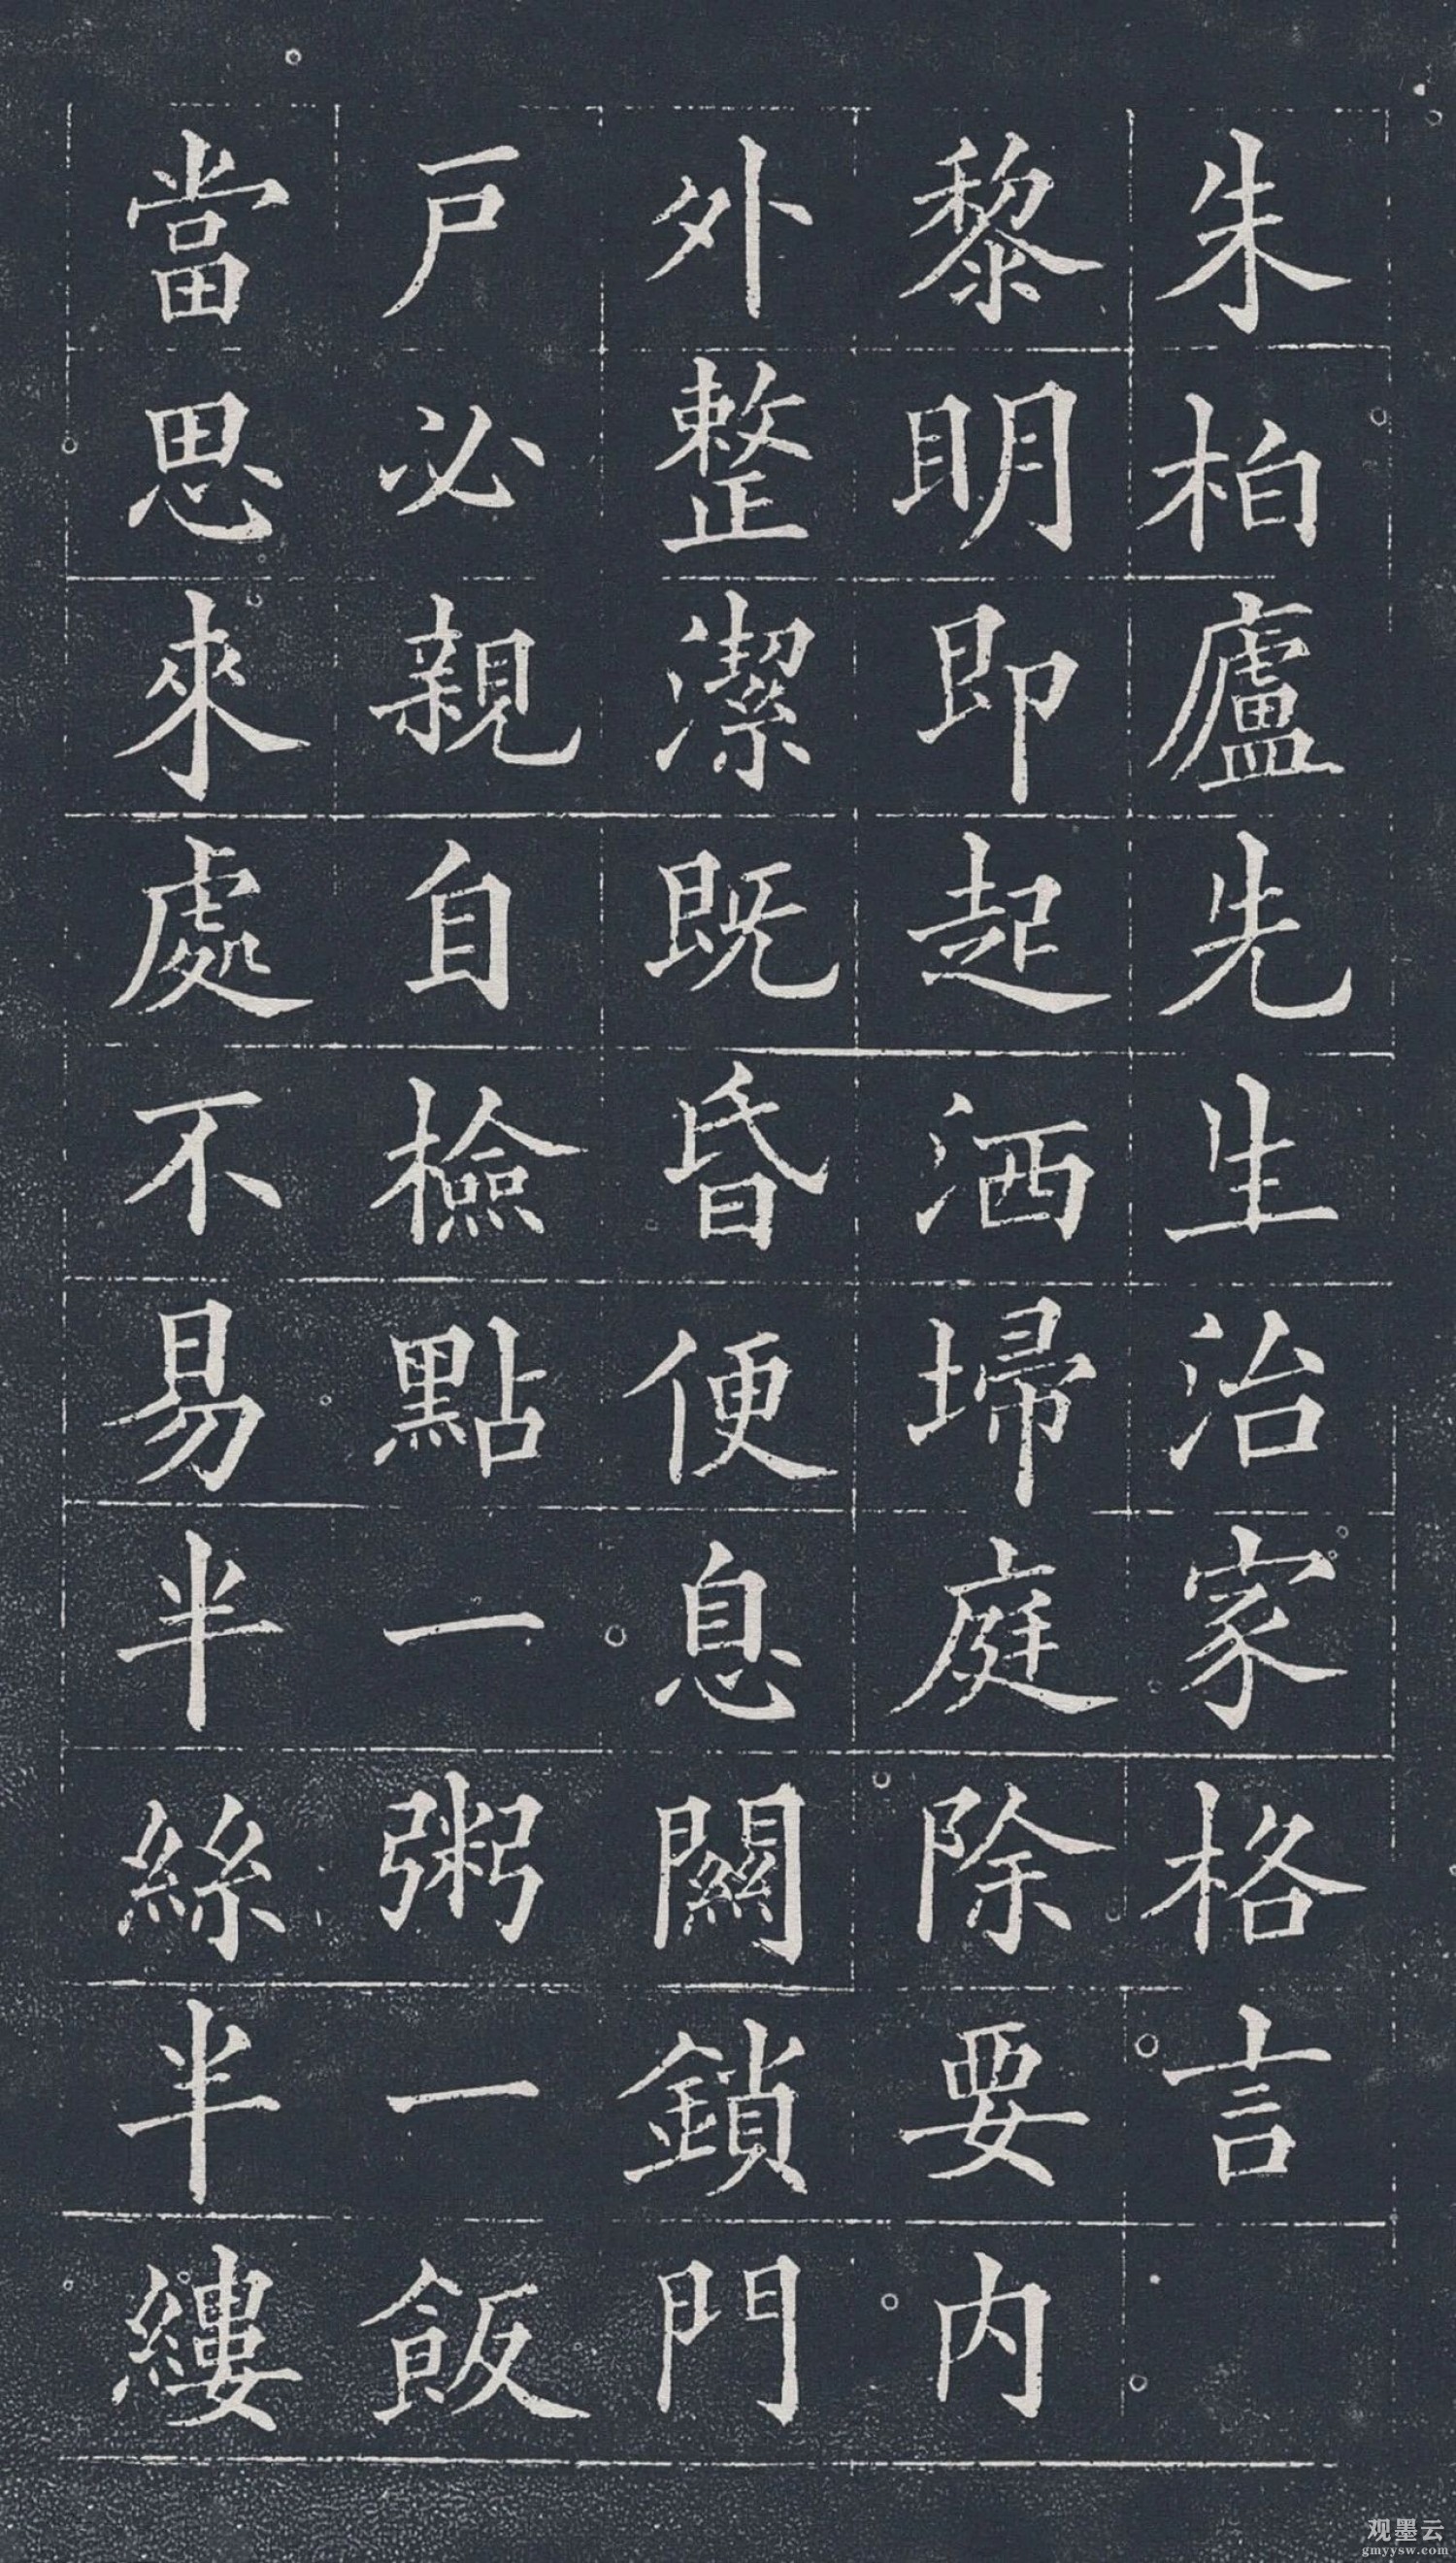 朱柏廬先生治家格言
黎明即起洒埽庭除要內
外整潔既昬便息關鎖門
戶必親自檢點一粥一飯
當思來處不易半絲半縷
观墨云
gmyysw.com